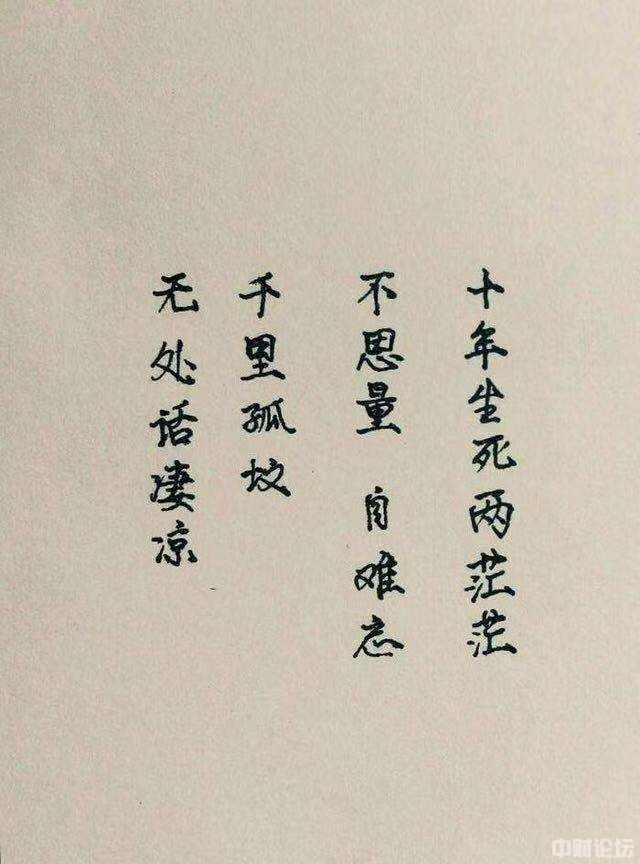 十年生死两茫茫
不思量 自难忘
千里孤坟
无处话凄凉
中财论坛